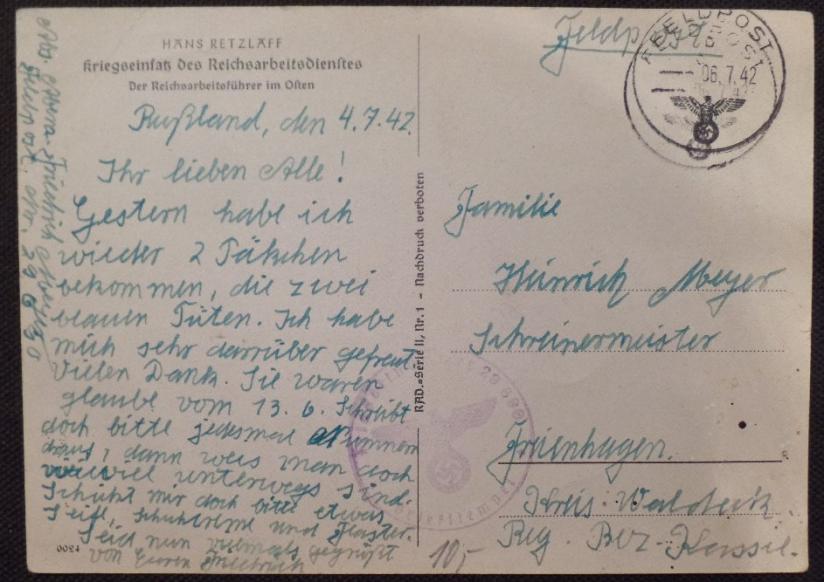 HANS RETZLAFF
Kriegseinsatz des Reichsarbeitsdienstes
Der Reichsarbeitsführer im Osten
Rußland, den 4.7.42.
Ihr lieben Alle!
Gestern habe ich
wieder 2 Päkchen
bekommen, die zwei
blauen Tüten. Ich habe
mich sehr darrüber gefreut.
Vielen Dank. Sie waren
glaube vom 13. 6. Schreibt
doch bitte jedesmal Nummern
drauf, dann weis man doch
wieviel unterwegs sind.
Schickt mir doch bitte etwas
Seife, Schuhkreme und Pflaster.
Seid nun vielmals gegrüßt
von Euren Friedrich
Friedrich Meyer
0024
RAD.-Serie II, Nr. 1 - Nachdruck verboten
Feldpost
FELDPOST
06.7.42
Familie
Heinrich Meyer
Schreinermeister
Freienhagen.
Kreis: Waldeck.
Reg. Bez. Kassel.
10,-